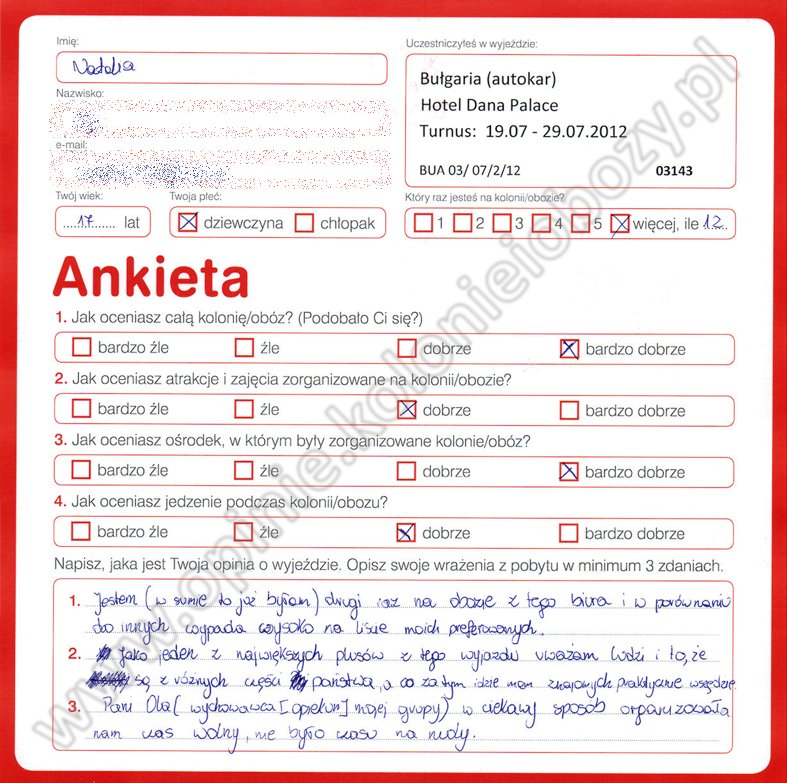 Imię:
Natalia
Nazwisko:
e-mail:
Twój wiek:
17 lat
Twoja płeć:
dziewczyna chłopak
Uczestniczyłeś w wyjeździe:
Bułgaria (autokar)
Hotel Dana Palace
Turnus: 19.07 - 29.07.2012
BUA 03/ 07/2/12 03143
Który raz jesteś na kolonii/obozie?
1 2 3 4 5 więcej, ile 12
Ankieta
1. Jak oceniasz całą kolonię/obóz? (Podobało Ci się?)
bardzo źle źle dobrze bardzo dobrze
2. Jak oceniasz atrakcje i zajęcia zorganizowane na kolonii/obozie?
bardzo źle źle dobrze bardzo dobrze
3. Jak oceniasz ośrodek, w którym były zorganizowane kolonie/obóz?
bardzo źle źle dobrze bardzo dobrze
4. Jak oceniasz jedzenie podczas kolonii/obozu?
bardzo źle źle dobrze bardzo dobrze
Napisz, jaka jest Twoja opinia o wyjeździe. Opisz swoje wrażenia z pobytu w minimum 3 zdaniach.
1. Jestem (w sumie to już byłam) drugi raz na obozie z tego biura i w porównaniu
do innych wypada wysoko na liście moich preferowanych.
2. Jako jeden z największych plusów z tego wyjazdu uważam ludzi i to, że
są z różnych części państwa, a co za tym idzie mam znajomych praktycznie wszędzie.
3. Pani Ola (wychowawca [opiekun] mojej grupy) w ciekawy sposób organizowała
nam czas wolny, nie było czasu na nudy.
www.opinie.kolonieiobozy.pl